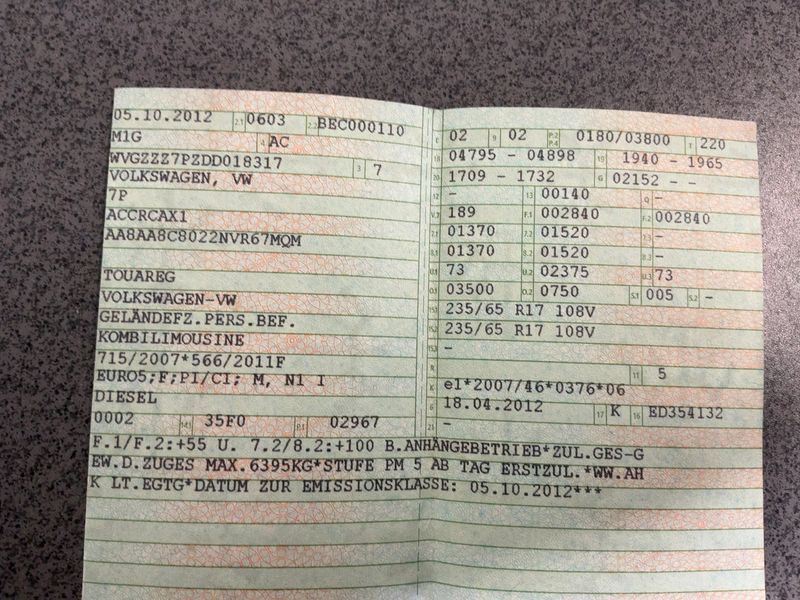 05.10.2012 2.1 0603 2.2 BEC000110
M1G 4 AC
WVGZZZ7PZDD018317 3 7
VOLKSWAGEN, VW
7P
ACCRCAX1
AA8AA8C8022NVR67MQM
TOUAREG
VOLKSWAGEN-VW
GELÄNDEFZ.PERS.BEF.
KOMBILIMOUSINE
715/2007*566/2011F
EURO5;F;PI/CI; M, N1 I
DIESEL
0002 35F0 P.1 02967
02 9 02 P.2 P.4 0180/03800 T 220
18 04795 - 04898 19 1940 - 1965
20 1709 - 1732 G 02152 - -
12 - 13 00140 Q -
V.7 189 F.1 002840 F.2 002840
7.1 01370 7.2 01520 7.3 -
8.1 01370 8.2 01520 8.3 -
U.1 73 U.2 02375 U.3 73
O.1 03500 O.2 0750 S.1 005 S.2 -
15.1 235/65 R17 108V
15.2 235/65 R17 108V
15.3 -
R 11 5
K e1*2007/46*0376*06
6 18.04.2012 17 K 16 ED354132
21 -
F.1/F.2:+55 U. 7.2/8.2:+100 B.ANHÄNGEBETRIEB*ZUL.GES-G
EW.D.ZUGES MAX.6395KG*STUFE PM 5 AB TAG ERSTZUL.*WW.AH
K LT.EGTG*DATUM ZUR EMISSIONSKLASSE: 05.10.2012***